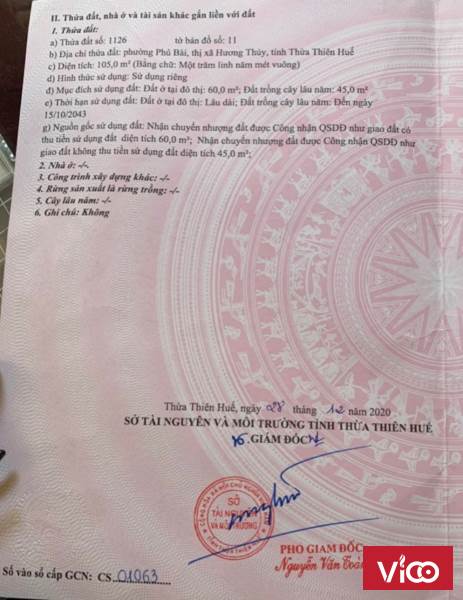 II. Thửa đất, nhà ở và tài sản khác gắn liền với đất
1. Thửa đất:
a) Thửa đất số: 1126 tờ bản đồ số: 11
b) Địa chỉ thửa đất: phường Phú Bài, thị xã Hương Thủy, tỉnh Thừa Thiên Huế
c) Diện tích: 105,0 m² (Bằng chữ: Một trăm linh năm mét vuông)
d) Hình thức sử dụng: Sử dụng riêng
đ) Mục đích sử dụng đất: Đất ở tại đô thị: 60,0 m²; Đất trồng cây lâu năm: 45,0 m²
e) Thời hạn sử dụng đất: Đất ở tại đô thị: Lâu dài; Đất trồng cây lâu năm: Đến ngày
15/10/2043
g) Nguồn gốc sử dụng đất: Nhận chuyển nhượng đất được Công nhận QSDĐ như giao đất có
thu tiền sử dụng đất diện tích 60,0 m²; Nhận chuyển nhượng đất được Công nhận QSDĐ như
giao đất không thu tiền sử dụng đất diện tích 45,0 m²;
2. Nhà ở: -/-
3. Công trình xây dựng khác: -/-
4. Rừng sản xuất là rừng trồng: -/-
5. Cây lâu năm: -/-
6. Ghi chú: Không
Thừa Thiên Huế, ngày 28 tháng 12 năm 2020
SỞ TÀI NGUYÊN VÀ MÔI TRƯỜNG TỈNH THỪA THIÊN HUẾ
GIÁM ĐỐC
SỞ
TÀI NGUYÊN
VÀ MÔI TRƯỜNG
PHÓ GIÁM ĐỐC
Nguyễn Văn
Số vào sổ cấp GCN: CS 01063
Vico